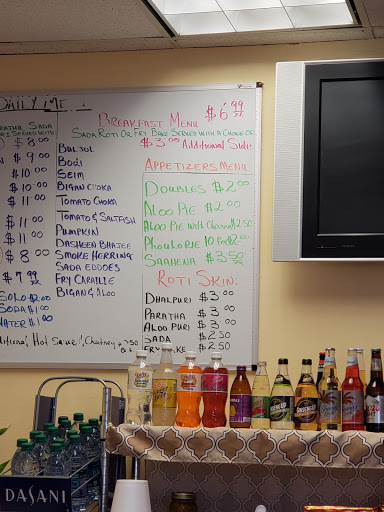 DAILY ME
BREAKFAST MENU $6.99
SADA ROTI OR FRY BAKE SERVED WITH A CHOICE OF
$3.00 Additional Side
BULJOL
BODI
SEIM
BIGAN CHOKA
TOMATO CHOKA
TOMATO & SALTFISH
PUMPKIN
DASHEEN BHAJEE
SMOKE HERRING
SADA EDDOES
FRY CARAILIE
BIGAN & ALOO
PARATHA SADA
SERVED WITH
$8.00
$9.00
$10.00
$10.00
$11.00
$11.00
$11.00
$8.00
$7.99
SOLO $2.00
SODA $1.00
WATER $1.00
Hot Sauce, Chutney
APPETIZERS MENU
DOUBLES $2.00
ALOO PIE $2.00
ALOO PIE with Channa $2.50
PHOULORIE 10 for $2.00
SAAHENA $3.50
ROTI SKIN:
DHALPURI $3.00
PARATHA $3.00
ALOO PURI $3.00
SADA $2.50
$2.50
DASANI